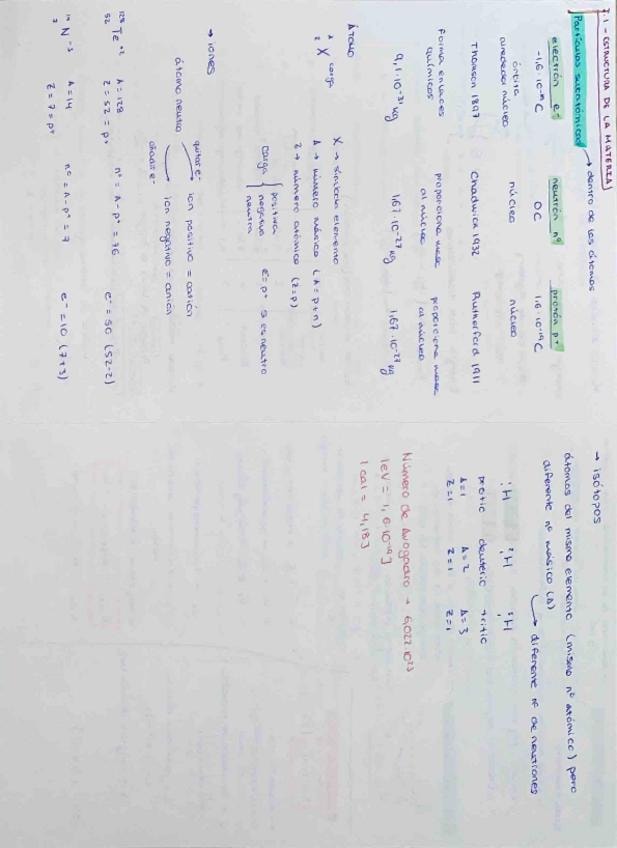 7.1 - ESTRUCTURA DE LA MATERIA
Partículas subatómicas → dentro de los átomos
electrón e⁻ neutrón nº protón p+
-1,6·10⁻¹⁹ C 0C 1,6·10⁻¹⁹ C
órbita núcleo núcleo
alrededor núcleo
Thomson 1897 Chadwick 1932 Rutherford 1911
forma enlaces proporciona masa proporciona masa
químicos al núcleo al núcleo
9,1·10⁻³¹ kg 1,67·10⁻²⁷ kg 1,67·10⁻²⁷ kg
ÁTOMO
A X carga X → símbolo elemento
Z A → número másico (A=p+n)
Z → número atómico (Z=p)
carga { positiva
negativa
neutra e⁻=p⁺ si es neutro
→ iones
átomo neutro quitar e⁻ → ion positivo = catión
añadir e⁻ → ion negativo = anión
¹²⁸₅₂Te⁺² A=128 nº = A-p⁺ = 76 e⁻ = 50 (52-2)
Z = 52 = p⁺
¹⁴₇N⁻³ A=14 nº = A-p⁺ = 7 e⁻ = 10 (7+3)
Z = 7 = p⁺
→ isótopos
átomos del mismo elemento (mismo nº atómico) pero
diferente nº másico (A)
→ diferente nº de neutrones
¹₁H ²₁H ³₁H
protio deuterio tritio
A=1 A=2 A=3
Z=1 Z=1 Z=1
Número de Avogadro → 6,022·10²³
1eV = 1,6·10⁻¹⁹ J
1 cal = 4,18J